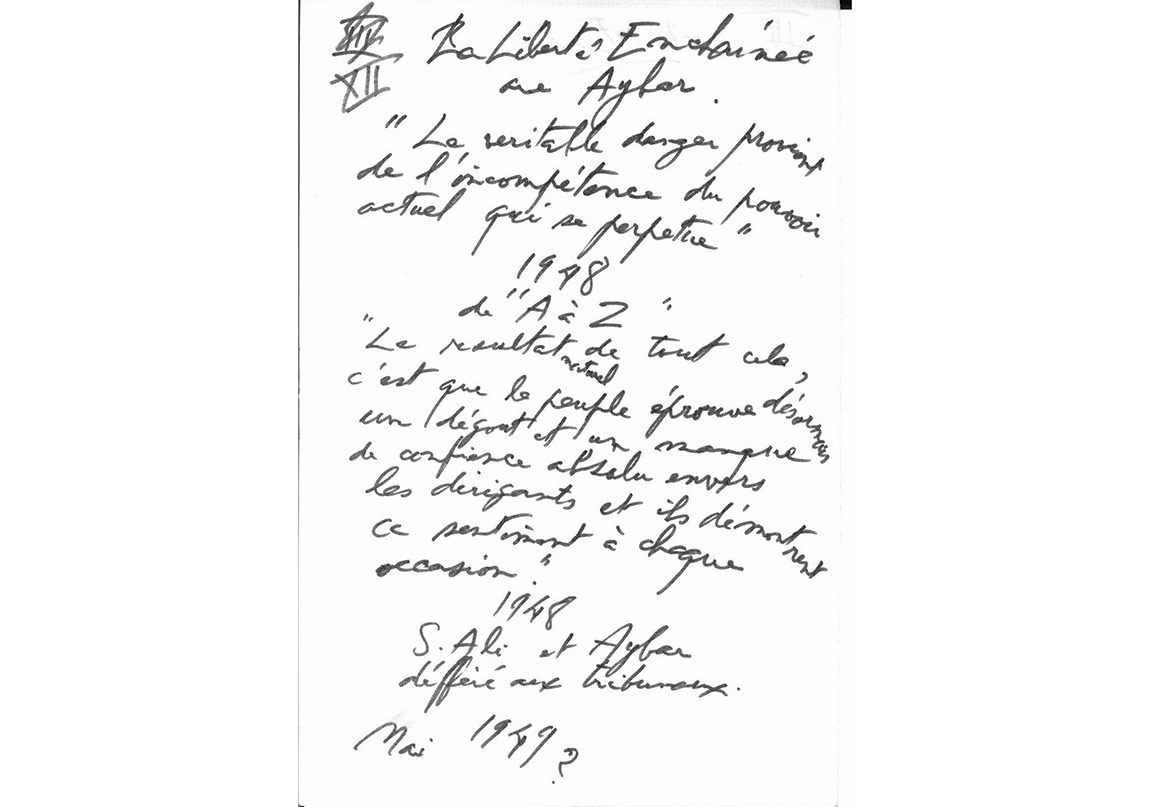 XII
La Liberté Enchainée
ave Aybar.
" Le veritable danger provient
de l'incompétence du pouvoir
actuel qui se perpetue "
1948
de "A à Z"
"Le resultat naturel de tout cela,
c'est que le peuple éprouve désormais
un dégout et un manque
de confience absolu envers
les dirigants et ils démontrent
ce sentiment à chaque
occasion."
1948
S. Ali et Aybar
défféré aux tribunaux.
Mai 1949 ?